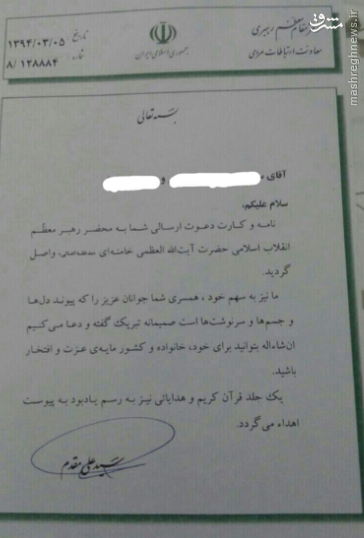 مقام معظم رهبری
معاونت ارتباطات مردمی
جمهوری اسلامی ایران
تاریخ ۱۳۹۴/۰۳/۰۵
شماره ۸/۱۲۸۸۸۴
مشرق
mashreghnews.ir
بسمه تعالی
آقای و
سلام علیکم،
نامه و کارت دعوت ارسالی شما به محضر رهبر معظم
انقلاب اسلامی حضرت آیت‌الله العظمی خامنه‌ای واصل
گردید.
ما نیز به سهم خود، همسری شما جوانان عزیز را که پیوند دل‌ها
و جسم‌ها و سرنوشت‌ها است صمیمانه تبریک گفته و دعا می‌کنیم
ان‌شاءاله بتوانید برای خود، خانواده و کشور مایه‌ی عزت و افتخار
باشید.
یک جلد قرآن کریم و هدایائی نیز به رسم یادبود به پیوست
اهداء می‌گردد.
سید علی مقدم